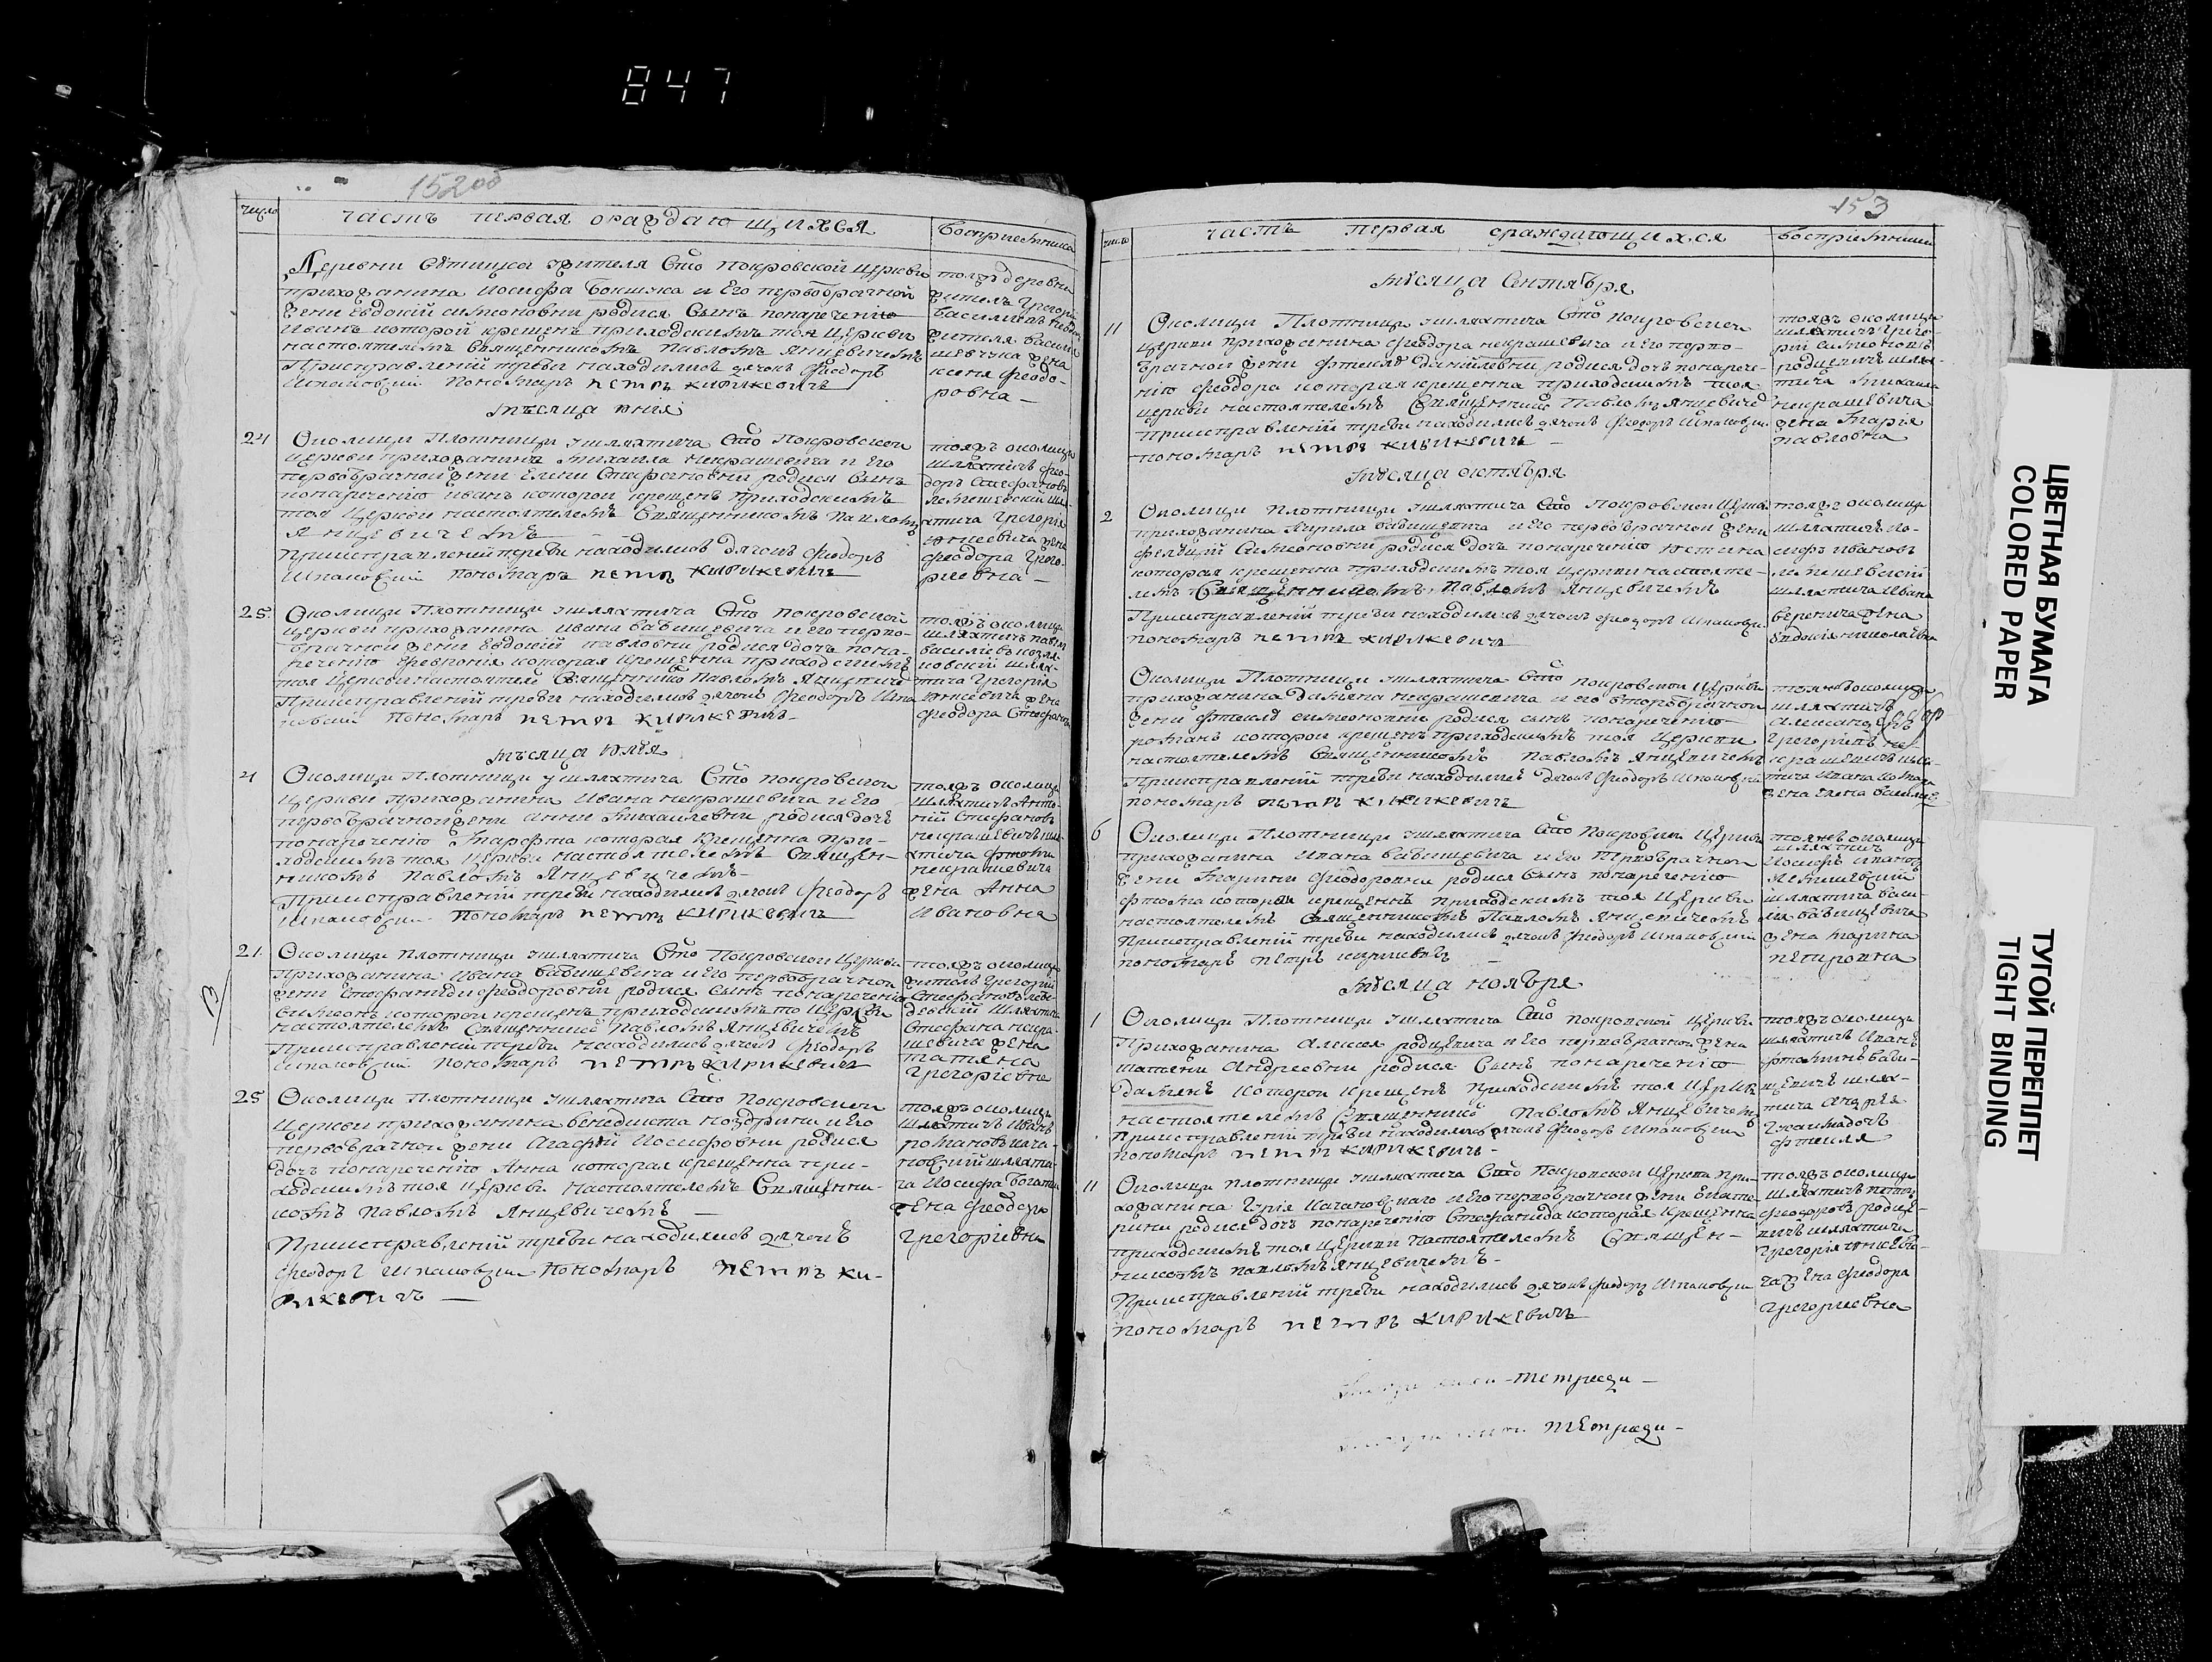 847
152об
число
часть первая ораждающихся
восприемника
Деревни жителя Сто покровской церкви
прихожанина Иосифа и его первобрачной
жени Евдокии симеоновни родися сынъ понаречению
Иванъ которой крещенъ приходскимъ тоя церкви
настоятелемъ Священникомъ Павломъ Янцевичемъ
Приисправлении треби находились дячокъ Феодоръ
Шпаковский Пономаръ петръ кирикевичъ
тояжъ деревни
житель Григорий
жителя Василия
жена
ксеня феодо-
ровна —
мѣсяца июня
24
Околици Плотници ушляхтича Сто Покровской
церкви прихожанина михаила Некрашевича и Его
первобрачной жени Елени Стефановни родися сынъ
понаречению иванъ которой крещенъ приходскимъ
тоя церкви настоятелемъ Священникомъ Павломъ
Янцевичемъ —
Приисправлении треби находились дячокъ феодоръ
Шпаковский Пономаръ петръ кирикевичъ
тояжъ околици
шляхтичъ фео-
доръ Стефановъ
лемешевский шля-
хтича Григория
жена
феодора Григо-
риевна —
25.
Околици Плотници ушляхтича Сто покровской
церкви прихожанина Ивана бабищевича и его перво-
брачной жени Евдокии павловни родися дочь пона-
речению феврония которая крещенна приходскимъ
тоя церкви настоятеле Священнико Павломъ Янцевиче
Приисправлении треби находились дячокъ феодоръ Шпа
ковский пономаръ петръ кирикевичъ —
тояжъ околици
шляхтичъ павелъ
василиевъ
шлях-
тича Григория
жена
феодора Стефанов
мѣсяца июля
4
Околици Плотници ушляхтича Сто покровской
церкви прихожанина Ивана некрашевича и его
первобрачной жени анни михаиловни родися дочь
понаречению которая крещенна при-
ходскимъ тоя церкви настоятелемъ Священ-
никомъ Павломъ Янцевичемъ —
Приисправлении треби находились дячокъ феодоръ
Шпаковский Пономаръ петръ кирикевичъ
тояжъ околици
шляхтичъ Анто-
ний Стефановъ
некрашевичъ шля-
хтича фоми
некрашевича
жена Анна
Ивановна
21.
Околици Плотници ушляхтича Сто Покровской церкви
прихожанина Ивана бабищевича и его первобрачной
жени Стефаниди феодоровни родися сынъ понаречению
симеонъ которой крещенъ приходскимъ то церкви
настоятелемъ Священнико Павломъ Янцевичемъ
Приисправлении треби находились дячокъ Феодоръ
Шпаковский пономаръ петръ кирикевичъ
тояжъ околици
житель Григорий
Стефановъ
шляхтича
Стефана некра-
шевича жена
татяна
Григориевна
25
Околици Плотници ушляхтича Сто Покровской
церкви прихожанина бенедикта ноздрини и его
первобрачной жени Агафии Иосифовни родися
дочь понаречению Анна которая крещенна при-
ходскимъ тоя церкви настоятелемъ Священни-
комъ Павломъ Янцевичемъ —
Приисправлении треби находились дячокъ
феодоръ Шпаковский пономаръ петръ ки-
рикевичъ —
тояжъ околици
шляхтичъ Иванъ
романовъ кача-
новский шляхти-
ча Иосифа
жена феодора
Григориевна
153
число
часть первая ораждающихся
восприемники
мѣсяца Сентября
11
Околици Плотници ушляхтича Сто покровской
церкви прихожанина феодора некрашевича и его перво-
брачной жени данииловни родися дочь понарече-
нию феодора которая крещенна приходскимъ тоя
церкви настоятелемъ Священнико Павломъ Янцевиче
Приисправлении треби находились дячокъ феодоръ Шпаковски
пономаръ петръ кирикевичъ —
тояжъ околици
шляхтичъ Григо-
рий симеоновъ
родцевичъ шлях-
тича михаила
некрашевича
жена мария
павловна
мѣсяца октября
2
Околици плотници ушляхтича Сто покровской церкви
прихожанина Кирила бабищевича и его первобрачной жени
Симеоновни родися дочь понаречению иустина
которая крещенна приходскимъ тоя церкви настояте-
лемъ Священникомъ Павломъ Янцевичемъ
Приисправлении треби находились дячокъ феодоръ Шпаковски
пономаръ петръ кирикевичъ
тояжъ околици
шляхтичъ ио-
сифъ ивановъ
лемешевский
шляхтича Ивана
веренича жена
Евдокия николаевна
Околици Плотници ушляхтича Сто покровской церкви
прихожанина Дамияна некрашевича и его второбрачной
жени симеоновни родися сынъ понаречению
романъ которой крещенъ приходскимъ тоя церкви
настоятелемъ Священникомъ Павломъ Янцевичемъ
Приисправлении треби находились дячокъ феодоръ Шпаковский
пономаръ петръ кирикевичъ
тояжъ околици
шляхтичъ
Александръ
Григориевъ не-
крашевичъ шля-
тича Ивана
жена елена
6
Околици Плотници ушляхтича Сто покровской церкви
прихожанина Ивана бабищевича и Его первобрачной
жени марини феодоровни родися сынъ понаречению
фома которой крещенъ приходскимъ тоя церкви
настоятелемъ Священникомъ Павломъ Янцевичемъ
Приисправлении треби находились дячокъ феодоръ Шпаковский
пономаръ петръ
тояжъ околици
шляхтичъ
Иосифъ ивановъ
лемешевский
шляхтича васи-
лия бабищевича
жена марина
петровна
мѣсяца ноября
1
Околици Плотници ушляхтича Сто покровской церкви
Прихожанина Алексея родцевича и Его первобрачной жени
татяни Андреевни родися сынъ понаречению
дамянъ которой крещенъ приходскимъ тоя церкви
настоятелемъ Священнико Павломъ Янцевичемъ
Приисправлении треби находились дячокъ феодоръ Шпаковски
пономаръ петръ кирикевичъ —
тояжъ околици
шляхтичъ Иванъ
фоминъ баби-
щевичъ шлях-
тича Андрея
11
Околици плотници ушляхтича Сто Покровской церкви при-
хожанина Качановскаго и его первобрачной жени Екате-
рини родися дочь понаречению Стефанида которая крещенна
приходскимъ тоя церкви настоятелемъ Священ-
никомъ павломъ Янцевичемъ —
Приисправлении треби находились дячокъ феодоръ Шпаковски
пономаръ петръ кирикевичъ
тояжъ околици
шляхтичъ петръ
феодоровъ родце-
вичъ шляхтича
Григория
жена феодора
Григориевна
тетради —
тетради —
ЦВЕТНАЯ БУМАГА
COLORED PAPER
ТУГОЙ ПЕРЕПЛЕТ
TIGHT BINDING